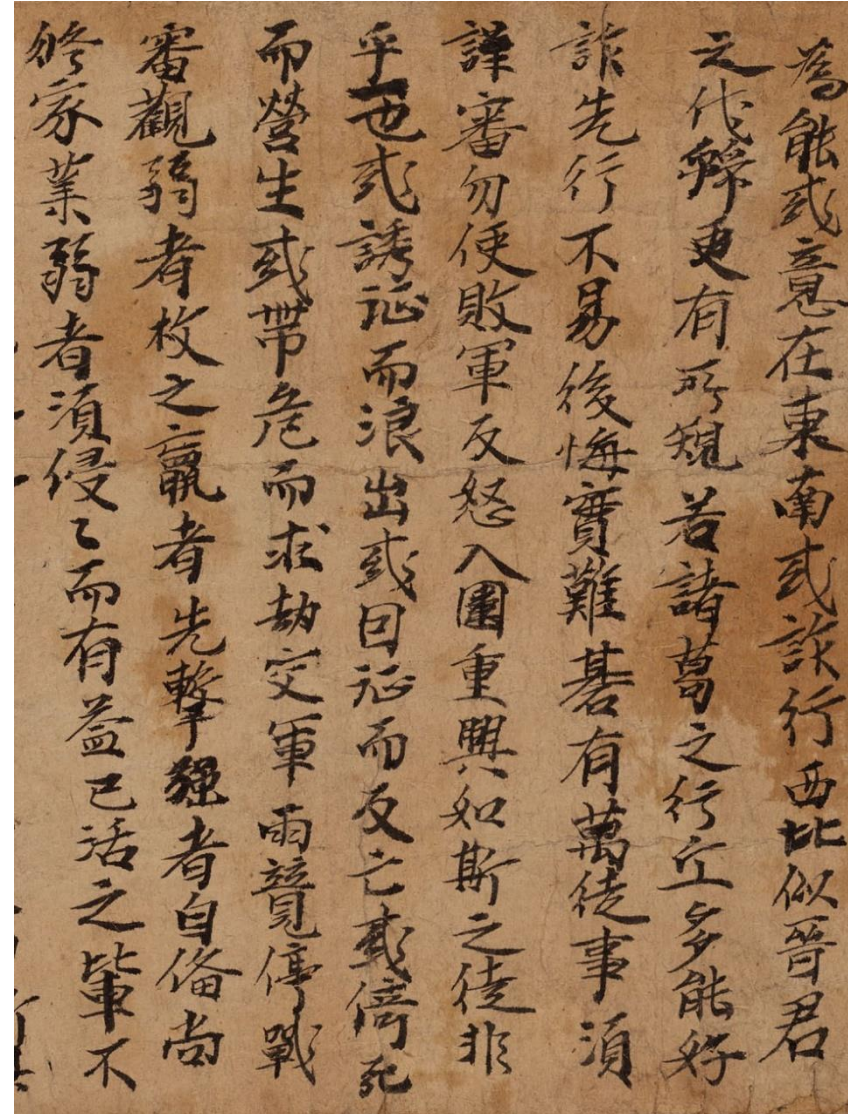 為能或意在東南或詐行西北似晉君
之伐虢更有所規若諸葛之行丘多能好
詐先行不易後悔實難碁有萬徒事須
謹審勿使敗軍反怒入圍重興如斯之徒非
乎一也或誘征而浪出或因征而反亡或倚死
而營生或帶危而求劫交軍兩競停戰
審觀弱者枚之羸者先擊強者自俻尚
修家業弱者須侵々而有益已活之輩不